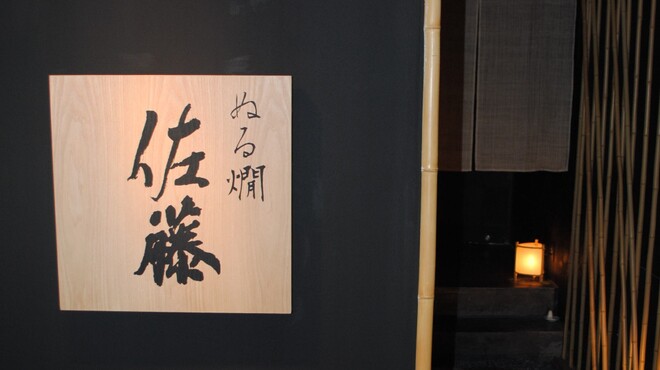 ぬる燗
佐藤